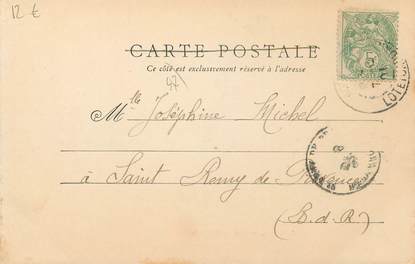 12 €
CARTE POSTALE
Ce côté est exclusivement réservé à l'adresse
47
5
Mlle Joséphine Michel
à Saint Remy de Provence
(B. d. R.)